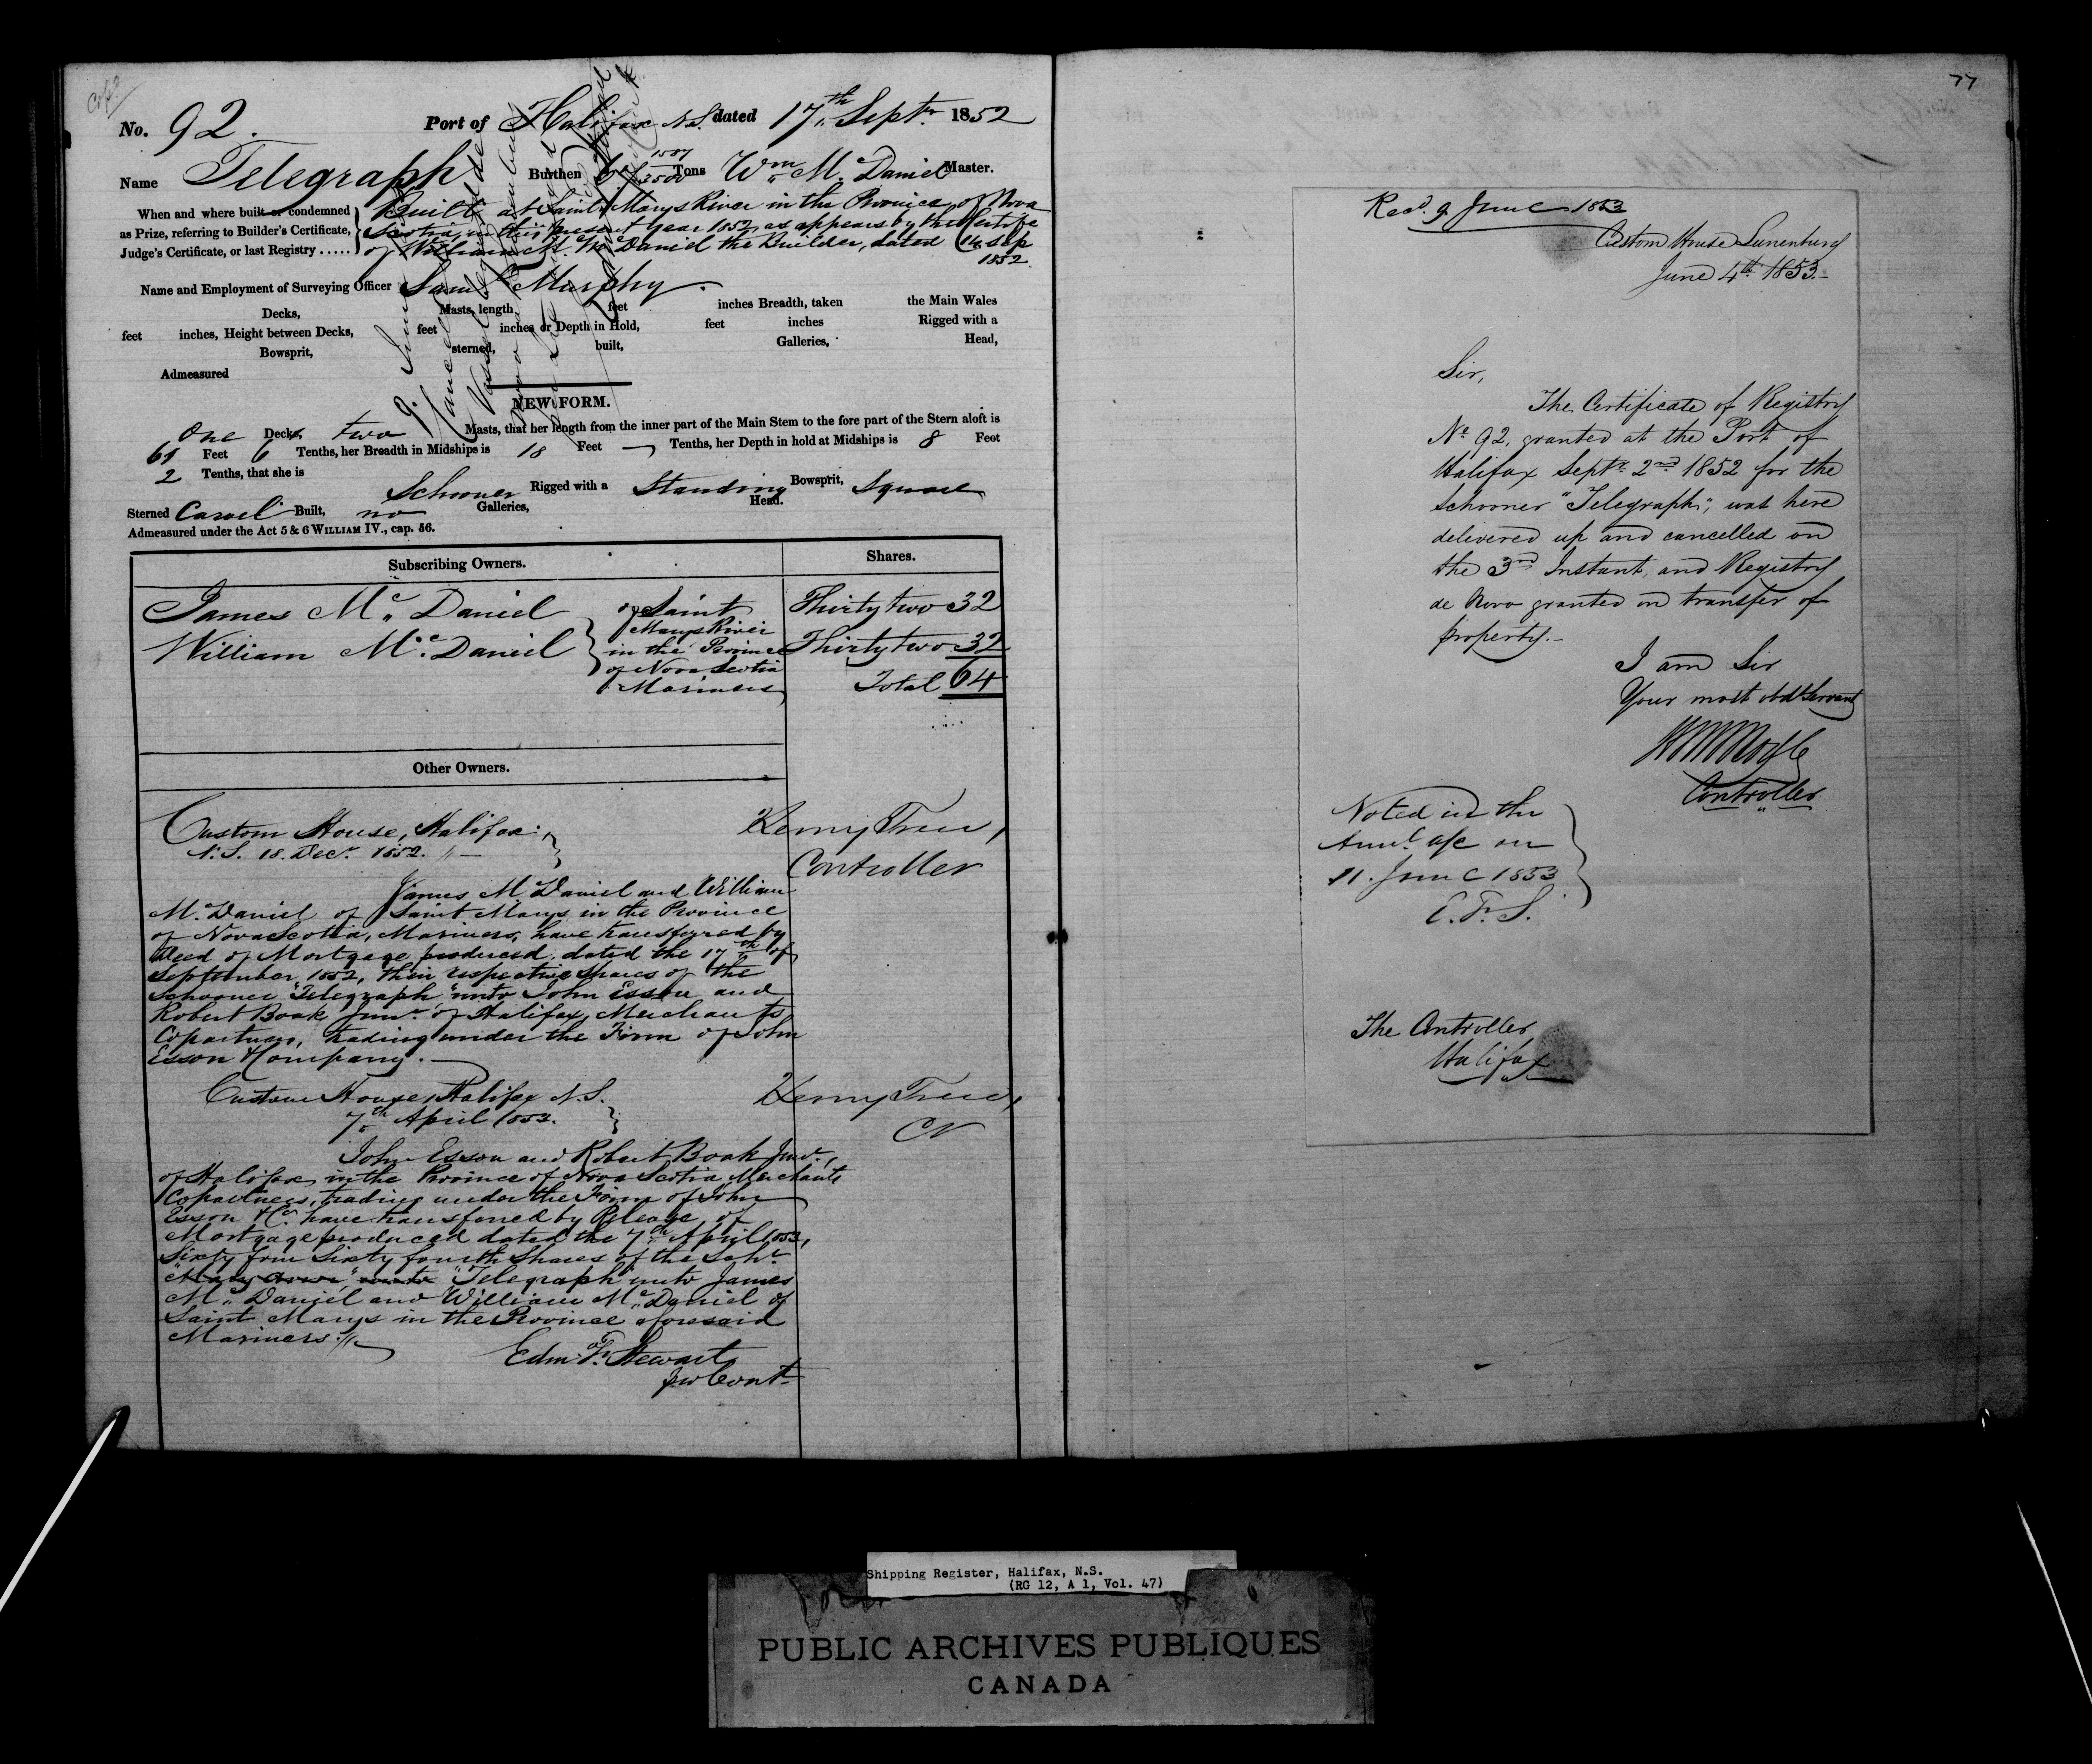 Copd
No. 92. Port of Halifax N.S. dated 17th Septr. 1852
Name Telegraph Burthen Tons Wm Mc Daniel Master.
1507
3500
When and where built or condemned
as Prize, referring to Builder's Certificate,
Judge's Certificate, or last Registry .....
Built at Saint Marys River in the Province of Nova
Scotia, in this present year 1852, as appears by the Certife
of William Mc Daniel the Builder, dated 14 Sep
1852.
Name and Employment of Surveying Officer Saml Murphy.
Decks, Masts, length feet inches Breadth, taken the Main Wales
feet inches, Height between Decks, feet inches or Depth in Hold, feet inches Rigged with a
Bowsprit, sterned, built, Galleries, Head,
Admeasured
NEW FORM.
One Decks, two Masts, that her length from the inner part of the Main Stem to the fore part of the Stern aloft is
61 Feet 6 Tenths, her Breadth in Midships is 18 Feet — Tenths, her Depth in hold at Midships is 8 Feet
2 Tenths, that she is
Schooner Rigged with a Standing Bowsprit, Square
Sterned Carvel Built, no Galleries, Head.
Admeasured under the Act 5 & 6 WILLIAM IV., cap. 56.
Subscribing Owners. Shares.
James Mc Daniel
William Mc Daniel
of Saint
Marys River
in the Province
of Nova Scotia
Mariners
Thirty two 32
Thirty two 32
Total 64
Other Owners.
Custom House, Halifax
N.S. 18. Decr. 1852.
Henry Trew,
Controller
James Mc Daniel and William
Mc Daniel of Saint Marys in the Province
of Nova Scotia, Mariners, have transferred by
Deed of Mortgage produced, dated the 17th of
September, 1852, their respective shares of the
Schooner "Telegraph" unto John Esson and
Robert Boak Junr. of Halifax, Merchants
Copartners, trading under the Firm of John
Esson & Company.
Custom House, Halifax N.S.
7th April 1853.
Henry Trew,
Cr
John Esson and Robert Boak Junr.,
of Halifax in the Province of Nova Scotia Merchants
Copartners, trading under the Firm of John
Esson & Co. have transferred by Release of
Mortgage produced dated the 7th April 1853,
Sixty four Sixty fourth Shares of the Schr.
"Telegraph" unto James
Mc Daniel and William Mc Daniel of
Saint Marys in the Province aforesaid
Mariners.
Edm. Fr. Stewart
for Cont.
77
Recd. 9 June 1853
Custom House Lunenburg
June 4th 1853.
Sir,
The Certificate of Registry
No 92, granted at the Port of
Halifax Septr. 2nd 1852 for the
Schooner "Telegraph", was here
delivered up and cancelled on
the 3rd Instant, and Registry
de Novo granted on transfer of
property.
I am Sir
Your most obdt Servant
Controller
Noted in the
Annl. a/c on
11. June 1853
E. F. S.
The Controller
Halifax
Shipping Register, Halifax, N.S.
(RG 12, A 1, Vol. 47)
PUBLIC ARCHIVES PUBLIQUES
CANADA